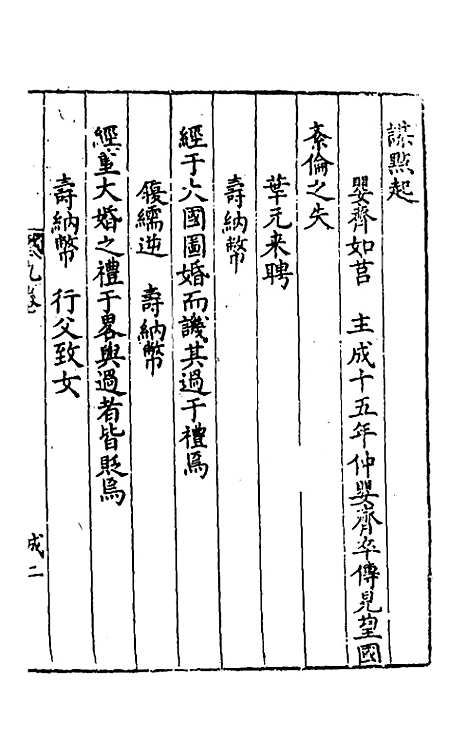 謀點起
嬰齊如莒　主成十五年仲嬰齊卒傳見望國
紊倫之失
華元来聘
壽納幣
經于大國圖婚而譏其過于禮焉
履繻逆　壽納幣
經重大婚之禮于畧與過者皆貶焉
壽納幣　行父致女
九卷
成二